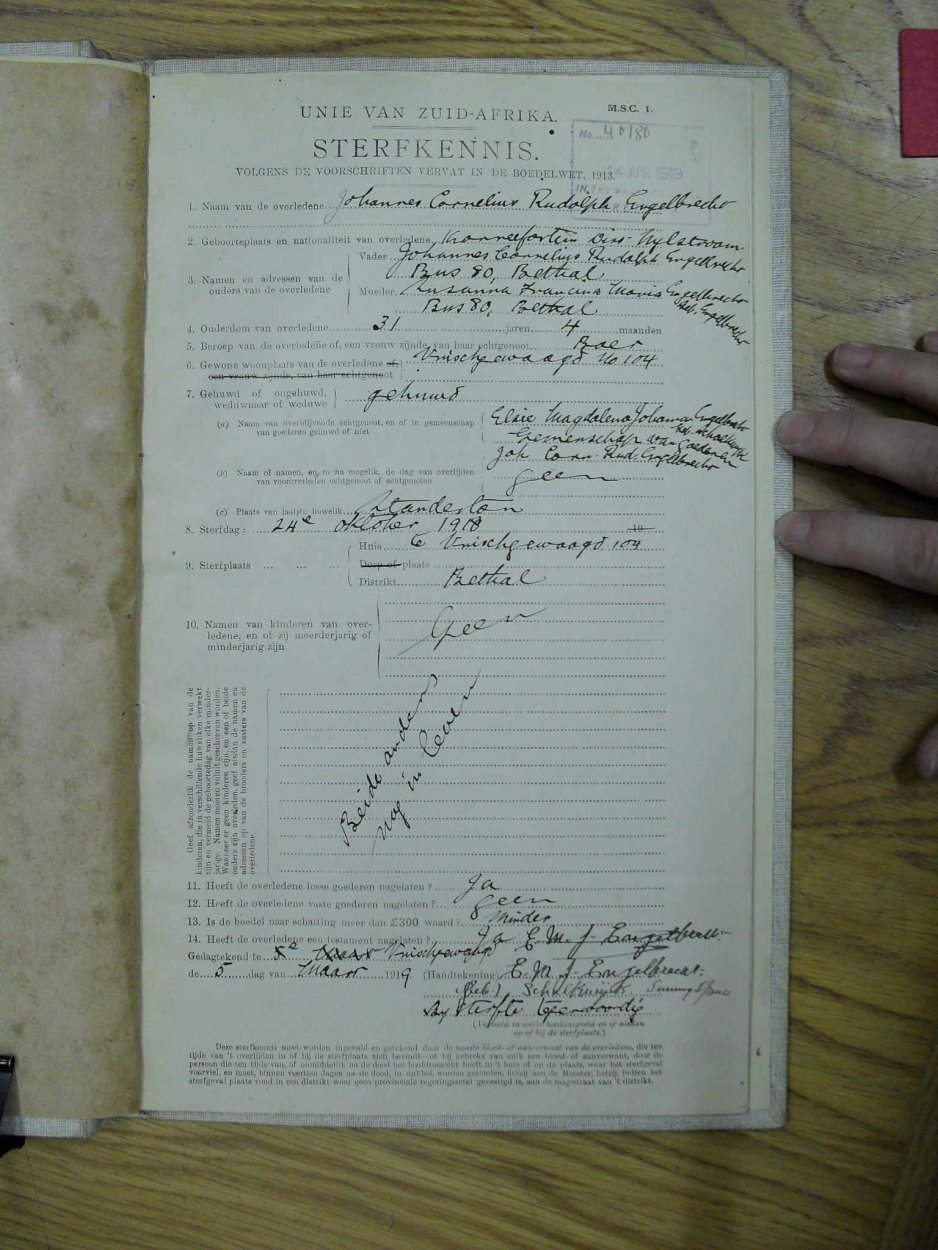 UNIE VAN ZUID-AFRIKA.
M.S.C. 1.
STERFKENNIS.
No. 40180
APR 1919
VOLGENS DE VOORSCHRIFTEN VERVAT IN DE BOEDELWET, 1913.
1. Naam van de overledene Johannes Cornelius Rudolph Engelbrecht
2. Geboorteplaats en nationaliteit van overledene Nylstroom
3. Namen en adressen van de ouders van de overledene
Vader Johannes Cornelius Rudolph Engelbrecht
Bus 80, Bethal
Moeder Susanna Francina Maria Engelbrecht
geb. Engelbrecht
Bus 80, Bethal
4. Ouderdom van overledene 31 jaren 4 maanden
5. Beroep van de overledene of, een vrouw zijnde, van haar echtgenoot Boer
6. Gewone woonplaats van de overledene of, een vrouw zijnde, van haar echtgenoot No 104
7. Gehuwd of ongehuwd, weduwnaar of weduwe gehuwd
(a) Naam van overblijvende echtgenoot, en of in gemeenschap van goederen gehuwd of niet
Elsie Magdalena Johanna Engelbrecht
geb. Schalkwyk
Gemenschap van Goederen
Joh. Corn. Rud. Engelbrecht
(b) Naam of namen, en zo na mogelik, de dag van overlijden van vooroverleden echtgenoot of echtgenoten
geen
(c) Plaats van laatste huwelik Standerton
8. Sterfdag: 24e Oktober 1918 19
9. Sterfplaats
Huis 104
Dorp of plaats
Distrikt Bethal
10. Namen van kinderen van overledene, en of zij meerderjarig of minderjarig zijn
Geen
Geef afzonderlik de namen op van de kinderen, die in verschillende huweliken verwekt zijn en vermeld de geboortedag van elke minderjarige. Namen moeten voluit geschreven worden. Wanneer er geen kinderen zijn, en een of beide ouders zijn overleden, geef alsdan de namen en adressen op van de broeders en zusters van de overledene.
Beide ouders
nog in leven
11. Heeft de overledene losse goederen nagelaten? Ja
12. Heeft de overledene vaste goederen nagelaten? geen
13. Is de boedel naar schatting meer dan £300 waard? Minder
14. Heeft de overledene een testament nagelaten? Ja E. M. J. Engelbrecht
Gedagtekend te
de 5 dag van Maart 1919 (Handtekening) E. M. J. Engelbrecht
(geb.) Schalkwyk
By sterfte teenwoordig
(Vermeld in welke hoedanigheid en of alsdan op of bij de sterfplaats.)
Deze sterfkennis moet worden ingevuld en getekend door de naaste bloed- of aanverwant van de overledene, die ten
tijde van 't overlijden in of bij de sterfplaats zich bevindt—of bij gebreke van zulk een bloed- of aanverwant, door de
persoon die ten tijde van, of onmiddelik na de dood het hoofdtoezicht heeft in 't huis of op de plaats, waar het sterfgeval
voorviel, en moet, binnen veertien dagen na de dood, in dubbel, worden gezonden, hetzij aan de Meester, hetzij, indien het
sterfgeval plaats vond in een distrikt waar geen provinciale regeringszetel gevestigd is, aan de magistraat van 't distrikt.